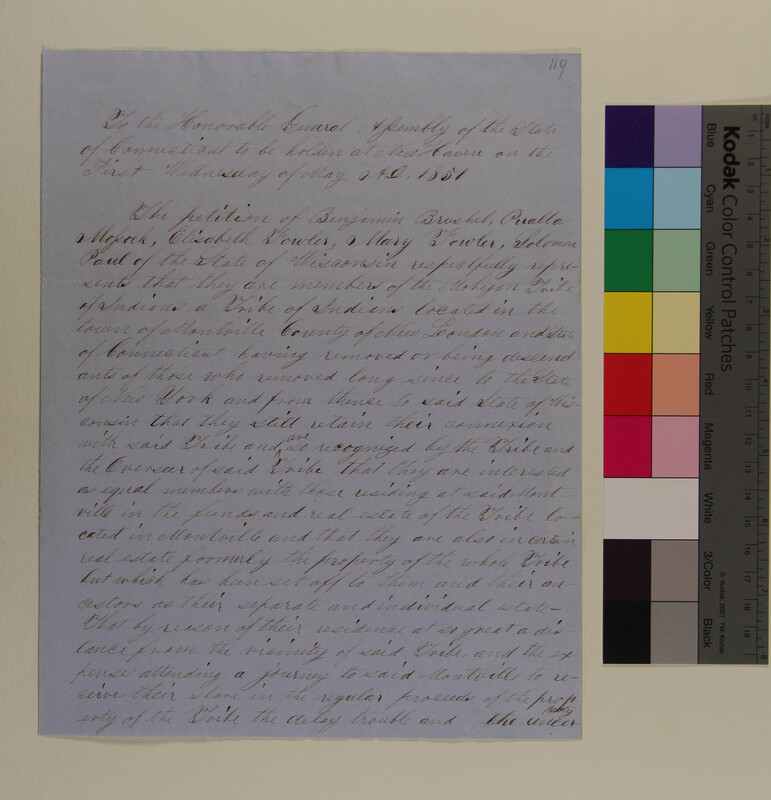 119
To the Honorable General Assembly of the State
of Connecticut to be holden at New Haven on the
First Wednesday of May A.D. 1851
The petition of Benjamin Brushel,
Elisabeth Fowler, Mary Fowler, Solomon
Paul of the State of Wisconsin respectfully repre-
sents that they are members of the Mohegan Tribe
of Indians, a Tribe of Indians located in the
town of Montville County of New London and State
of Connecticut having removed or being descend
ants of those who removed long since to the State
of New York and from thence to said State of Wis-
consin that they still retain their connexion
with said Tribe and are so recognized by the Tribe and
the Overseer of said Tribe that they are interested
as equal members with those residing at said Mont-
ville in the funds and real estate of the Tribe lo-
cated in Montville and that they are also in certain
real estate formerly the property of the whole Tribe
but which has been set off to them and their an-
cestors as their separate and individual estate-
That by reason of their residence at so great a dis
tance from the vicinity of said Tribe and the ex-
pense attending a journey to said Montville to re-
ceive their share in the regular proceeds of the prop
erty of the Tribe the delay trouble and the under
Kodak Color Control Patches
Blue
Cyan
Green
Yellow
Red
Magenta
White
3/Color
Black
© Kodak, 2007 TM: Kodak